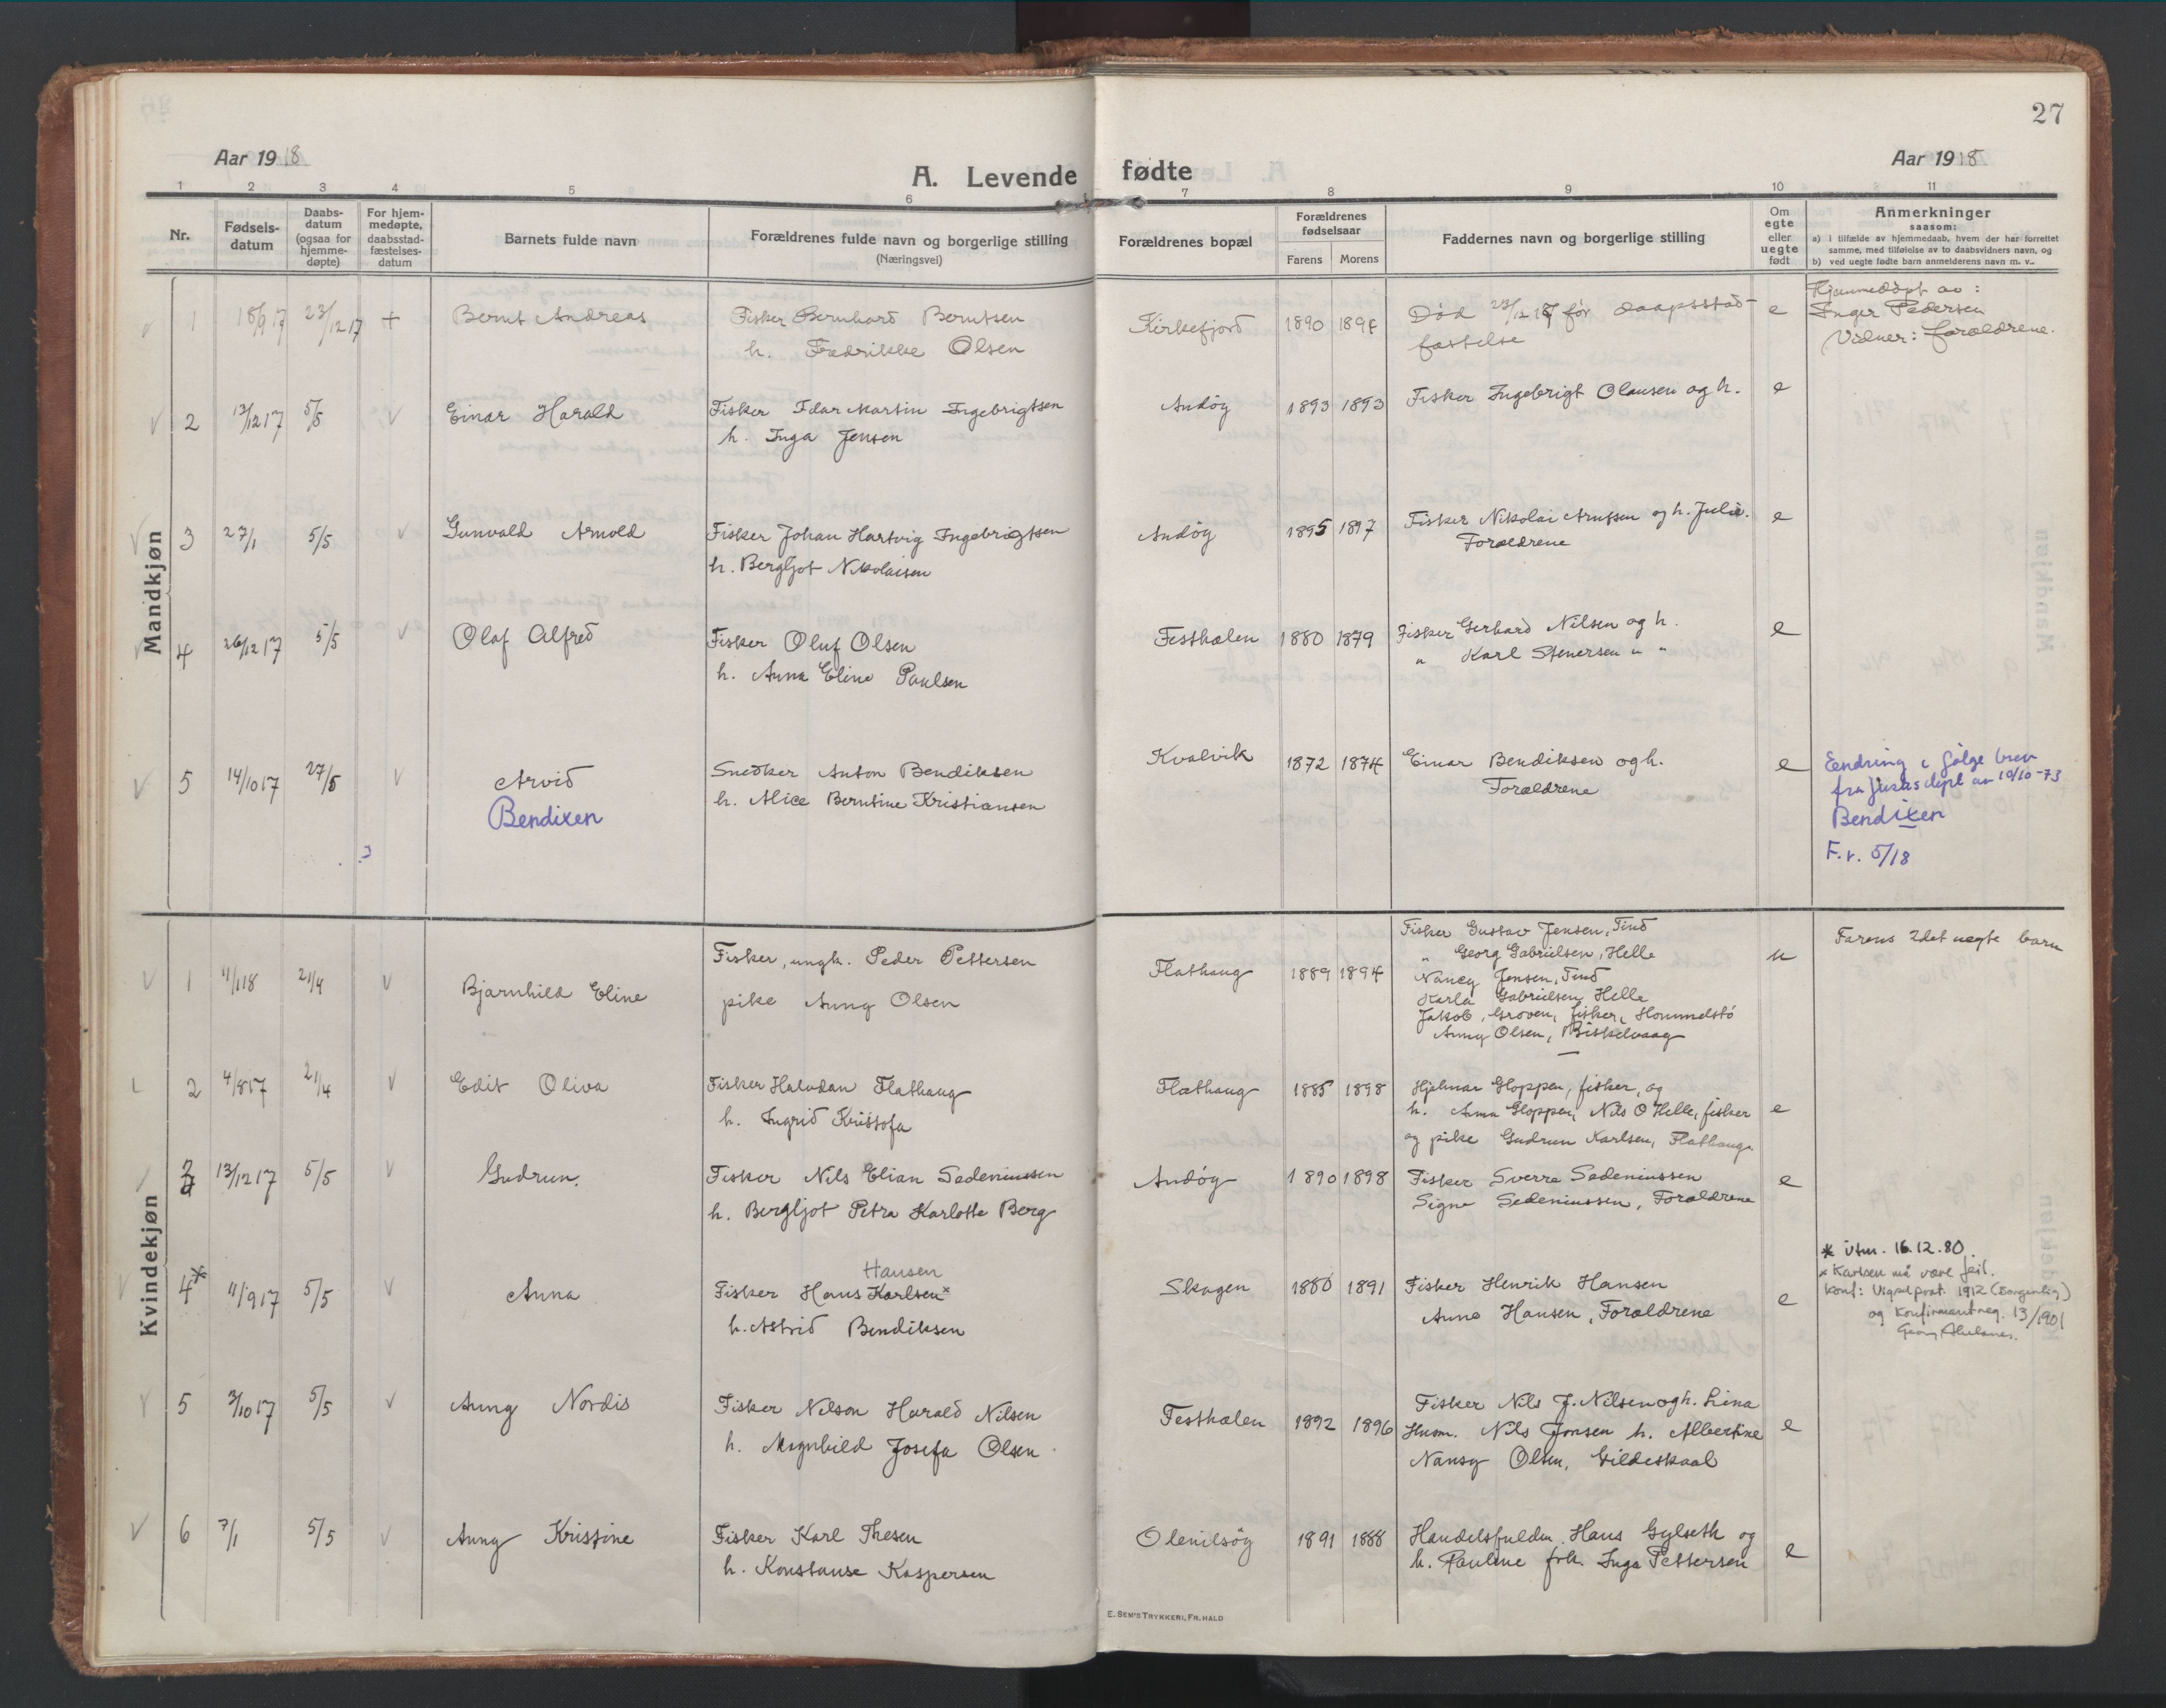 27
Aar 1918
A. Levende fødte
Aar 1918
1 2 3 4 5 6 7 8 9 10 11
Nr.
Fødsels-
datum
Daabs-
datum
(ogsaa for
hjemme-
døpte)
For hjem-
medøpte,
daabsstad-
fæstelses-
datum
Barnets fulde navn
Forældrenes fulde navn og borgerlige stilling
(Næringsvei)
Forældrenes bopæl
Forældrenes
fødselsaar
Farens Morens
Faddernes navn og borgerlige stilling
Om
egte
eller
uegte
født
Anmerkninger
saasom:
a) i tilfælde av hjemmedaab, hvem der har forrettet
samme, med tilføielse av to daabsvidners navn, og
b) ved uegte fødte barn anmelderens navn m. v.
Mandkjøn
1 18/9 17 23/12 17 + Bernt Andreas
Fisker Bernhard Berntsen
h. Fredrikke Olsen
Kirkefjord 1890 1894
Død 23/12 17 før daapsstad-
fæstelse
e
Hjemmedøpt av :
Inger Pedersen
Vidner: forældrene.
2 13/12 17 5/5 Einar Harald
Fisker Idar Martin Ingebrigtsen
h. Inga Jensen
Andøy 1893 1893
Fisker Ingebrigt Olausen og h.
e
3 27/1 5/5 Gunvald Arnold
Fisker Johan Hartvig Ingebrigtsen
h. Bergljot Nikolaisen
Andøy 1895 1897
Fisker Nikolai Arntsen og h. Julie.
Forældrene
e
4 26/12 17 5/5 Olaf Alfred
Fisker Oluf Olsen
h. Anna Eline Paulsen
Festhælen 1880 1879
Fisker Gerhard Nilsen og h.
" Karl Stenersen " "
e
5 14/10 17 27/5 Arvid
Bendixen
Snedker Anton Bendiksen
h. Alice Berntine Kristiansen
Kvalvik 1872 1874
Einar Bendiksen og h.
Forældrene
e
Endring i følge brev
fra Justisdept av 10/10-73
Bendixen
F.r. 5/18
Kvindekjøn
1 11/1 18 21/4 Bjarnhild Eline
Fisker, ungk. Peder Pettersen
pike Anny Olsen
Flathaug 1889 1894
Fisker Gustav Jensen, Tind
" Georg Gabrielsen, Helle
Nancy Jensen, Tind
Karla Gabrielsen, Helle
Jakob Groven, fisker,
Anny Olsen,
u
Farens 2det uegte barn
2 4/8 17 21/4 Edit Oliva
Fisker Halvdan Flathaug
h. Ingrid Kristofa
Flathaug 1885 1898
Hjalmar Gloppen, fisker, og
h. Anna Gloppen, Nils O Helle, fisker
og pike Gudrun Karlsen, Flathaug
e
3 13/12 17 5/5 Gudrun.
Fisker Nils Elian Sedeniussen
h. Bergljot Petra Karlotte Berg
Andøy 1890 1898
Fisker Sverre Sedeniussen
Signe Sedeniussen, Forældrene
e
4* 11/9 17 5/5 Anna
Hansen
Fisker Hans Karlsen×
h. Astrid Bendiksen
Skagen 1880 1891
Fisker Henrik Hansen
Anna Hansen, Forældrene
e
* Utm. 16.12.80.
× Karlsen må være feil.
Konf: Vigselprot. 1912 (Sørgenlig)
og Konfirmantreg. 13/1901
5 3/10 17 5/5 Anny Nordis
Fisker Nelson Harald Nilsen
h. Magnhild Josefa Olsen
Festhælen 1892 1896
Fisker Nils J. Nilsen og h. Lina
Husm. Nils Jonsen h. Albertine
Nansy Olsen, Gildeskaal
e
6 7/1 5/5 Anny Kristine
Fisker Karl Thesen
h. Konstanse Kaspersen
Olenilsøy 1891 1888
Handelsfuldm. Hans Gylseth og
h. Pauline frk. Inga Pettersen
e
E. SEM'S TRYKKERI, FR. HALD